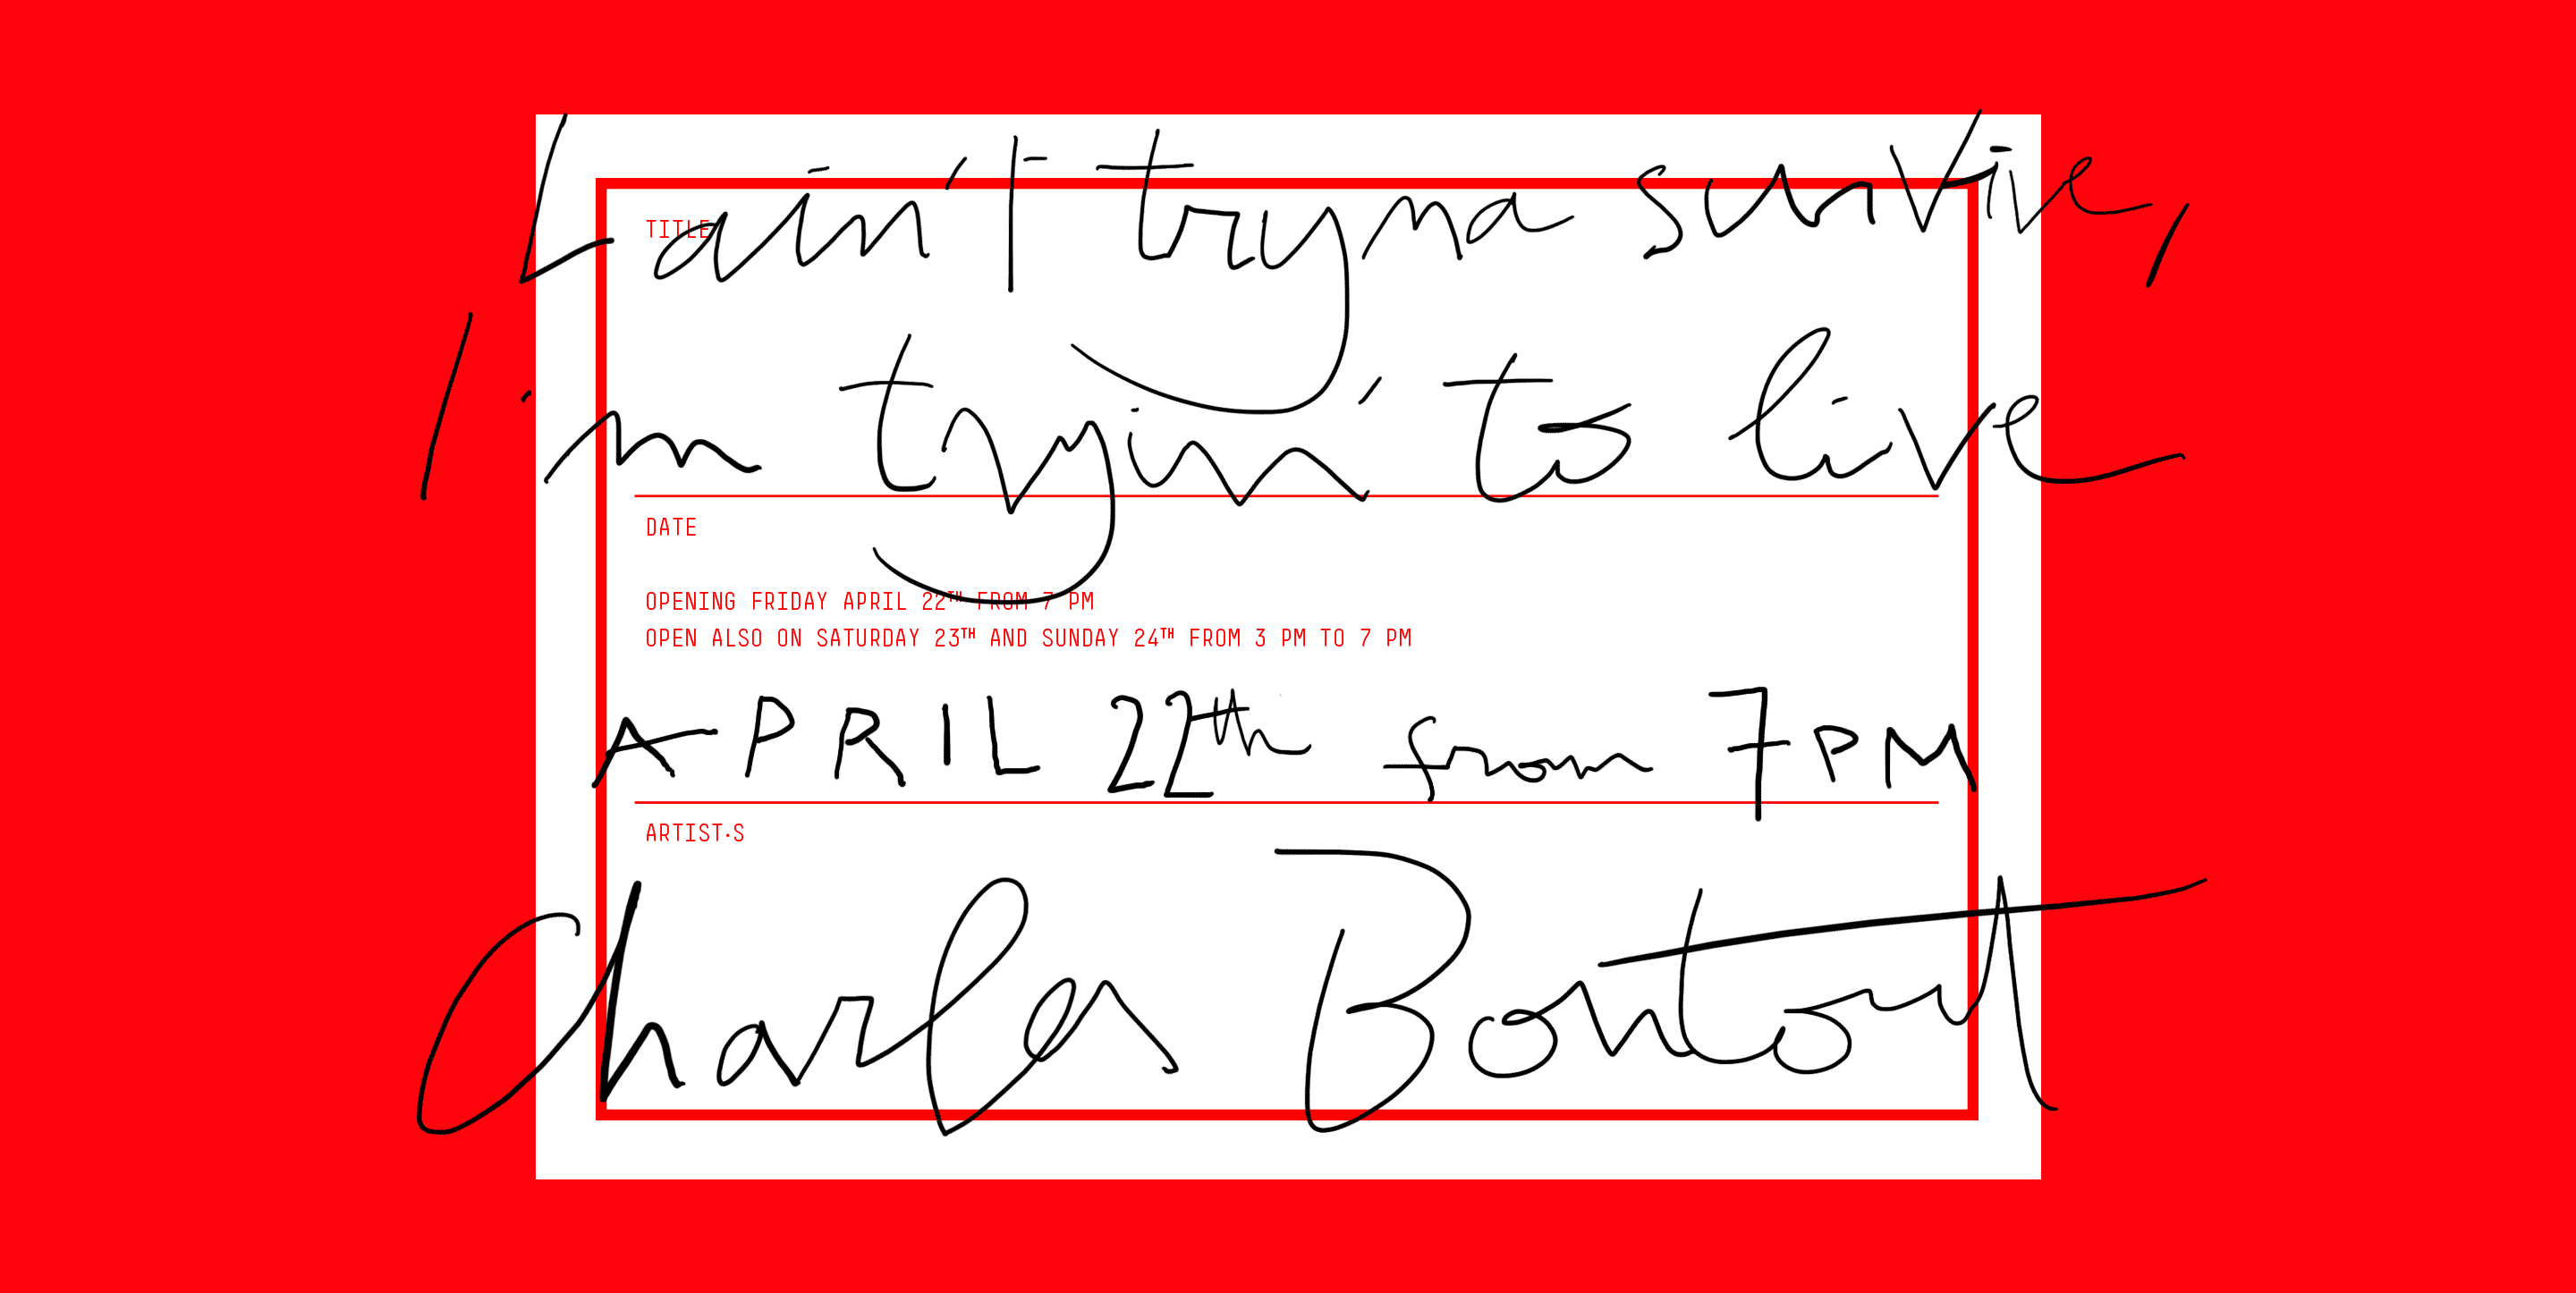 TITLE
I ain't tryna survive,
I'm tryin' to live
DATE
OPENING FRIDAY APRIL 22TH FROM 7 PM
OPEN ALSO ON SATURDAY 23TH AND SUNDAY 24TH FROM 3 PM TO 7 PM
APRIL 22th from 7PM
ARTIST·S
Charles Bontout